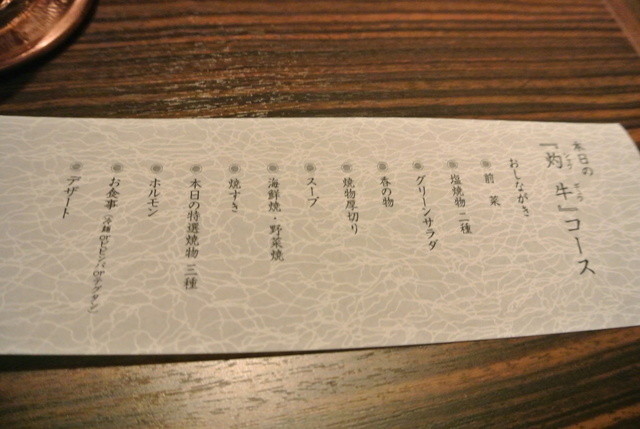 本日の
『灼 牛』コース
おしながき
前 菜
塩焼物 二種
グリーンサラダ
香の物
焼物厚切り
スープ
海鮮焼・野菜焼
焼すき
本日の特選焼物 三種
ホルモン
お食事（冷麺orビビンバorテグタン）
デザート